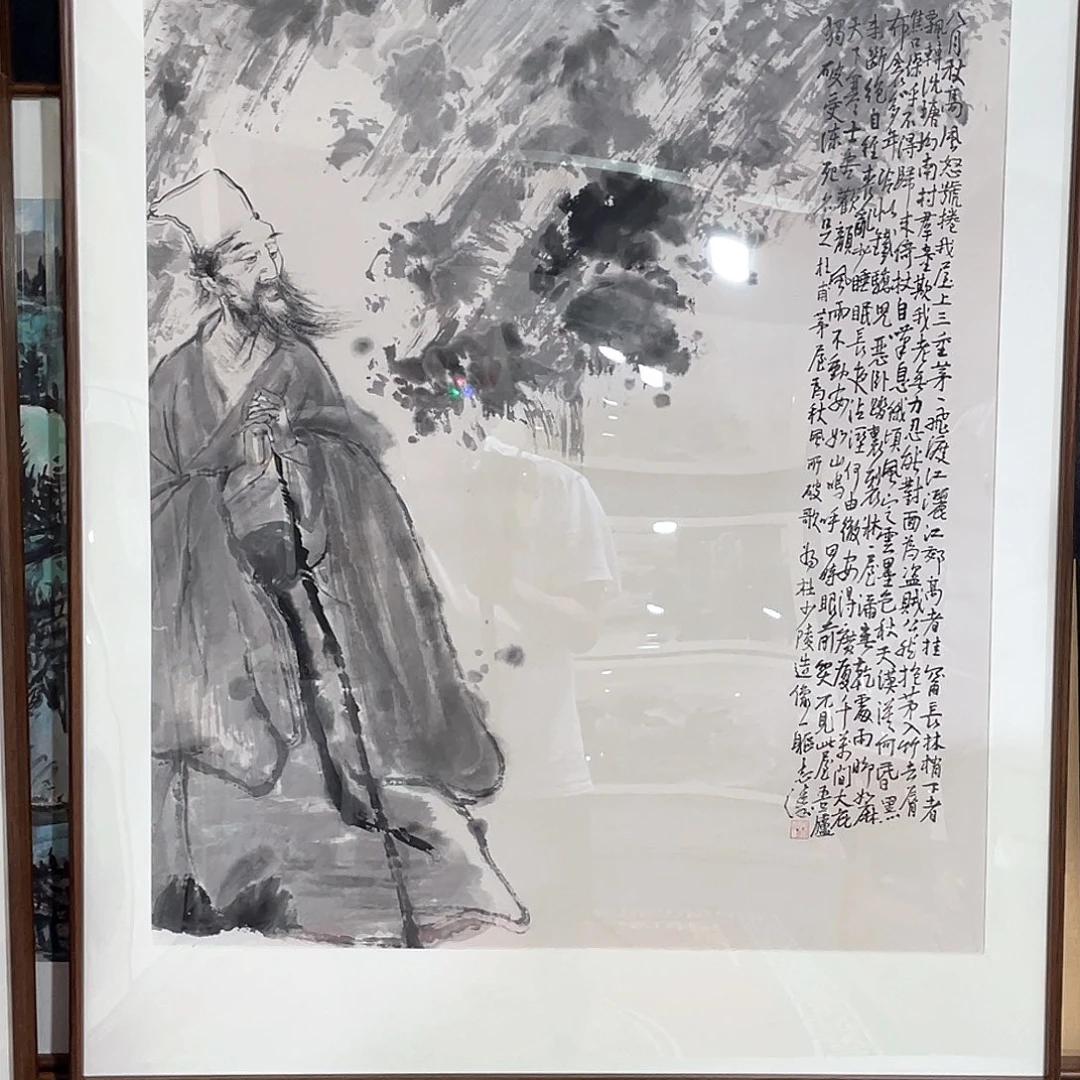 八月秋高風怒號捲我屋上三重茅〻飛渡江灑江郊高者挂罥長林梢下者
飄轉沈塘坳南村羣童欺我老無力忍能對面為盜賊公然抱茅入竹去脣
焦口燥呼不得歸來倚杖自嘆息俄頃風定雲墨色秋天漠漠向昏黑
布衾多年冷似鐵驕兒惡卧踏裏裂牀〻屋漏無乾處雨腳如麻
未斷絕自經喪亂少睡眠長夜沾溼何由徹安得廣廈千萬間大庇
天下寒士盡歡顏風雨不動安如山嗚呼何時眼前突兀見此屋吾廬
獨破受凍死亦足杜甫茅屋為秋風所破歌 為杜少陵造像一軀